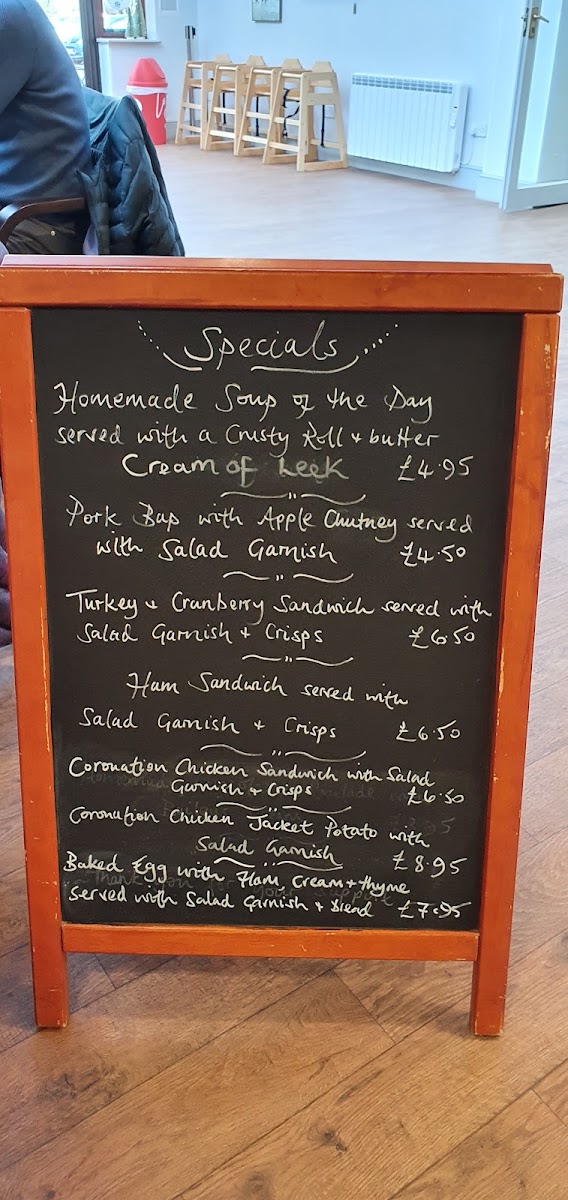 Specials
Homemade Soup of the Day
served with a Crusty Roll + butter
Cream of Leek £4.95
Pork Bap with Apple Chutney served
with Salad Garnish £4.50
Turkey + Cranberry Sandwich served with
Salad Garnish + Crisps £6.50
Ham Sandwich served with
Salad Garnish + Crisps £6.50
Coronation Chicken Sandwich with Salad
Garnish + Crisps £6.50
Coronation Chicken Jacket Potato with
Salad Garnish £8.95
Baked Egg with Ham, Cream + thyme
Served with Salad Garnish + Bread £7.95